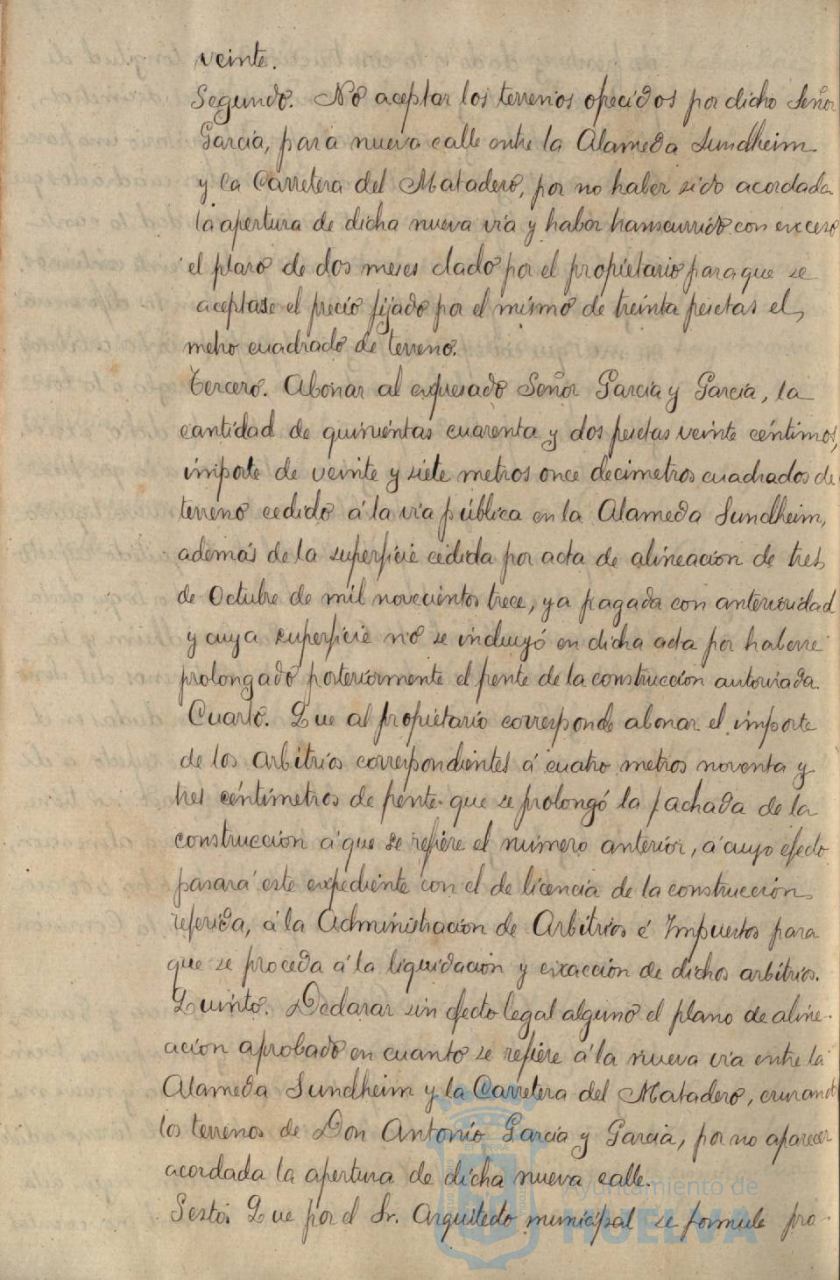 veinte.
Segundo. No aceptar los terrenos ofrecidos por dicho Señor
García, para nueva calle entre la Alameda Sundheim
y la Carretera del Matadero, por no haber sido acordada
la apertura de dicha nueva vía y haber transcurrido con exceso
el plazo de dos meses dado por el propietario para que se
aceptase el precio fijado por el mismo de treinta pesetas el
metro cuadrado de terreno.
Tercero. Abonar al expresado Señor García y García, la
cantidad de quinientas cuarenta y dos pesetas veinte céntimos,
importe de veinte y siete metros once decímetros cuadrados de
terreno cedido á la vía pública en la Alameda Sundheim,
además de la superficie cedida por acta de alineación de tres
de Octubre de mil novecientos trece, ya pagada con anterioridad
y cuya superficie no se incluyó en dicha acta por haberse
prolongado posteriormente el frente de la construcción autorizada.
Cuarto. Que al propietario corresponde abonar el importe
de los arbitrios correspondientes á cuatro metros noventa y
tres céntimetros de frente que se prolongó la fachada de la
construcción á que se refiere el número anterior, á cuyo efecto
pasará este expediente con el de licencia de la construcción
referida, á la Administración de Arbitrios é Impuestos para
que se proceda á la liquidación y exacción de dichos arbitrios.
Quinto. Declarar sin efecto legal alguno el plano de aline-
ación aprobado en cuanto se refiere á la nueva vía entre la
Alameda Sundheim y la Carretera del Matadero, cruzando
los terrenos de Don Antonio García y García, por no aparecer
acordada la apertura de dicha nueva calle.
Sesto. Que por el Sr. Arquitecto municipal se formule pro-
Ayuntamiento de
HUELVA